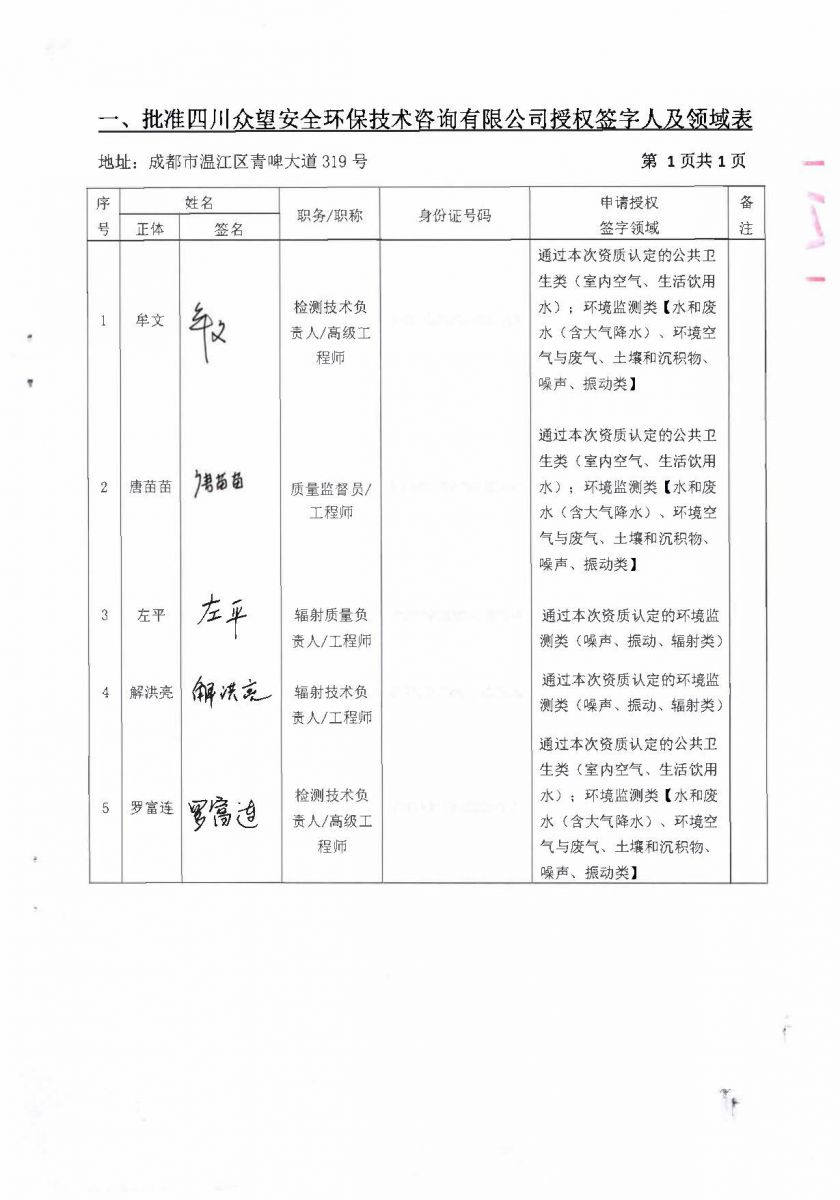 一、批准四川众望安全环保技术咨询有限公司授权签字人及领域表
地址：成都市温江区青啤大道 319 号
第 1 页共 1 页
序号
姓名
正体
签名
职务/职称
身份证号码
申请授权
签字领域
备注
1
牟文
牟文
检测技术负
责人/高级工
程师
通过本次资质认定的公共卫
生类（室内空气、生活饮用
水）；环境监测类【水和废
水（含大气降水）、环境空
气与废气、土壤和沉积物、
噪声、振动类】
2
唐苗苗
唐苗苗
质量监督员/
工程师
通过本次资质认定的公共卫
生类（室内空气、生活饮用
水）；环境监测类【水和废
水（含大气降水）、环境空
气与废气、土壤和沉积物、
噪声、振动类】
3
左平
左平
辐射质量负
责人/工程师
通过本次资质认定的环境监
测类（噪声、振动、辐射类）
4
解洪亮
解洪亮
辐射技术负
责人/工程师
通过本次资质认定的环境监
测类（噪声、振动、辐射类）
5
罗富连
罗富连
检测技术负
责人/高级工
程师
通过本次资质认定的公共卫
生类（室内空气、生活饮用
水）；环境监测类【水和废
水（含大气降水）、环境空
气与废气、土壤和沉积物、
噪声、振动类】